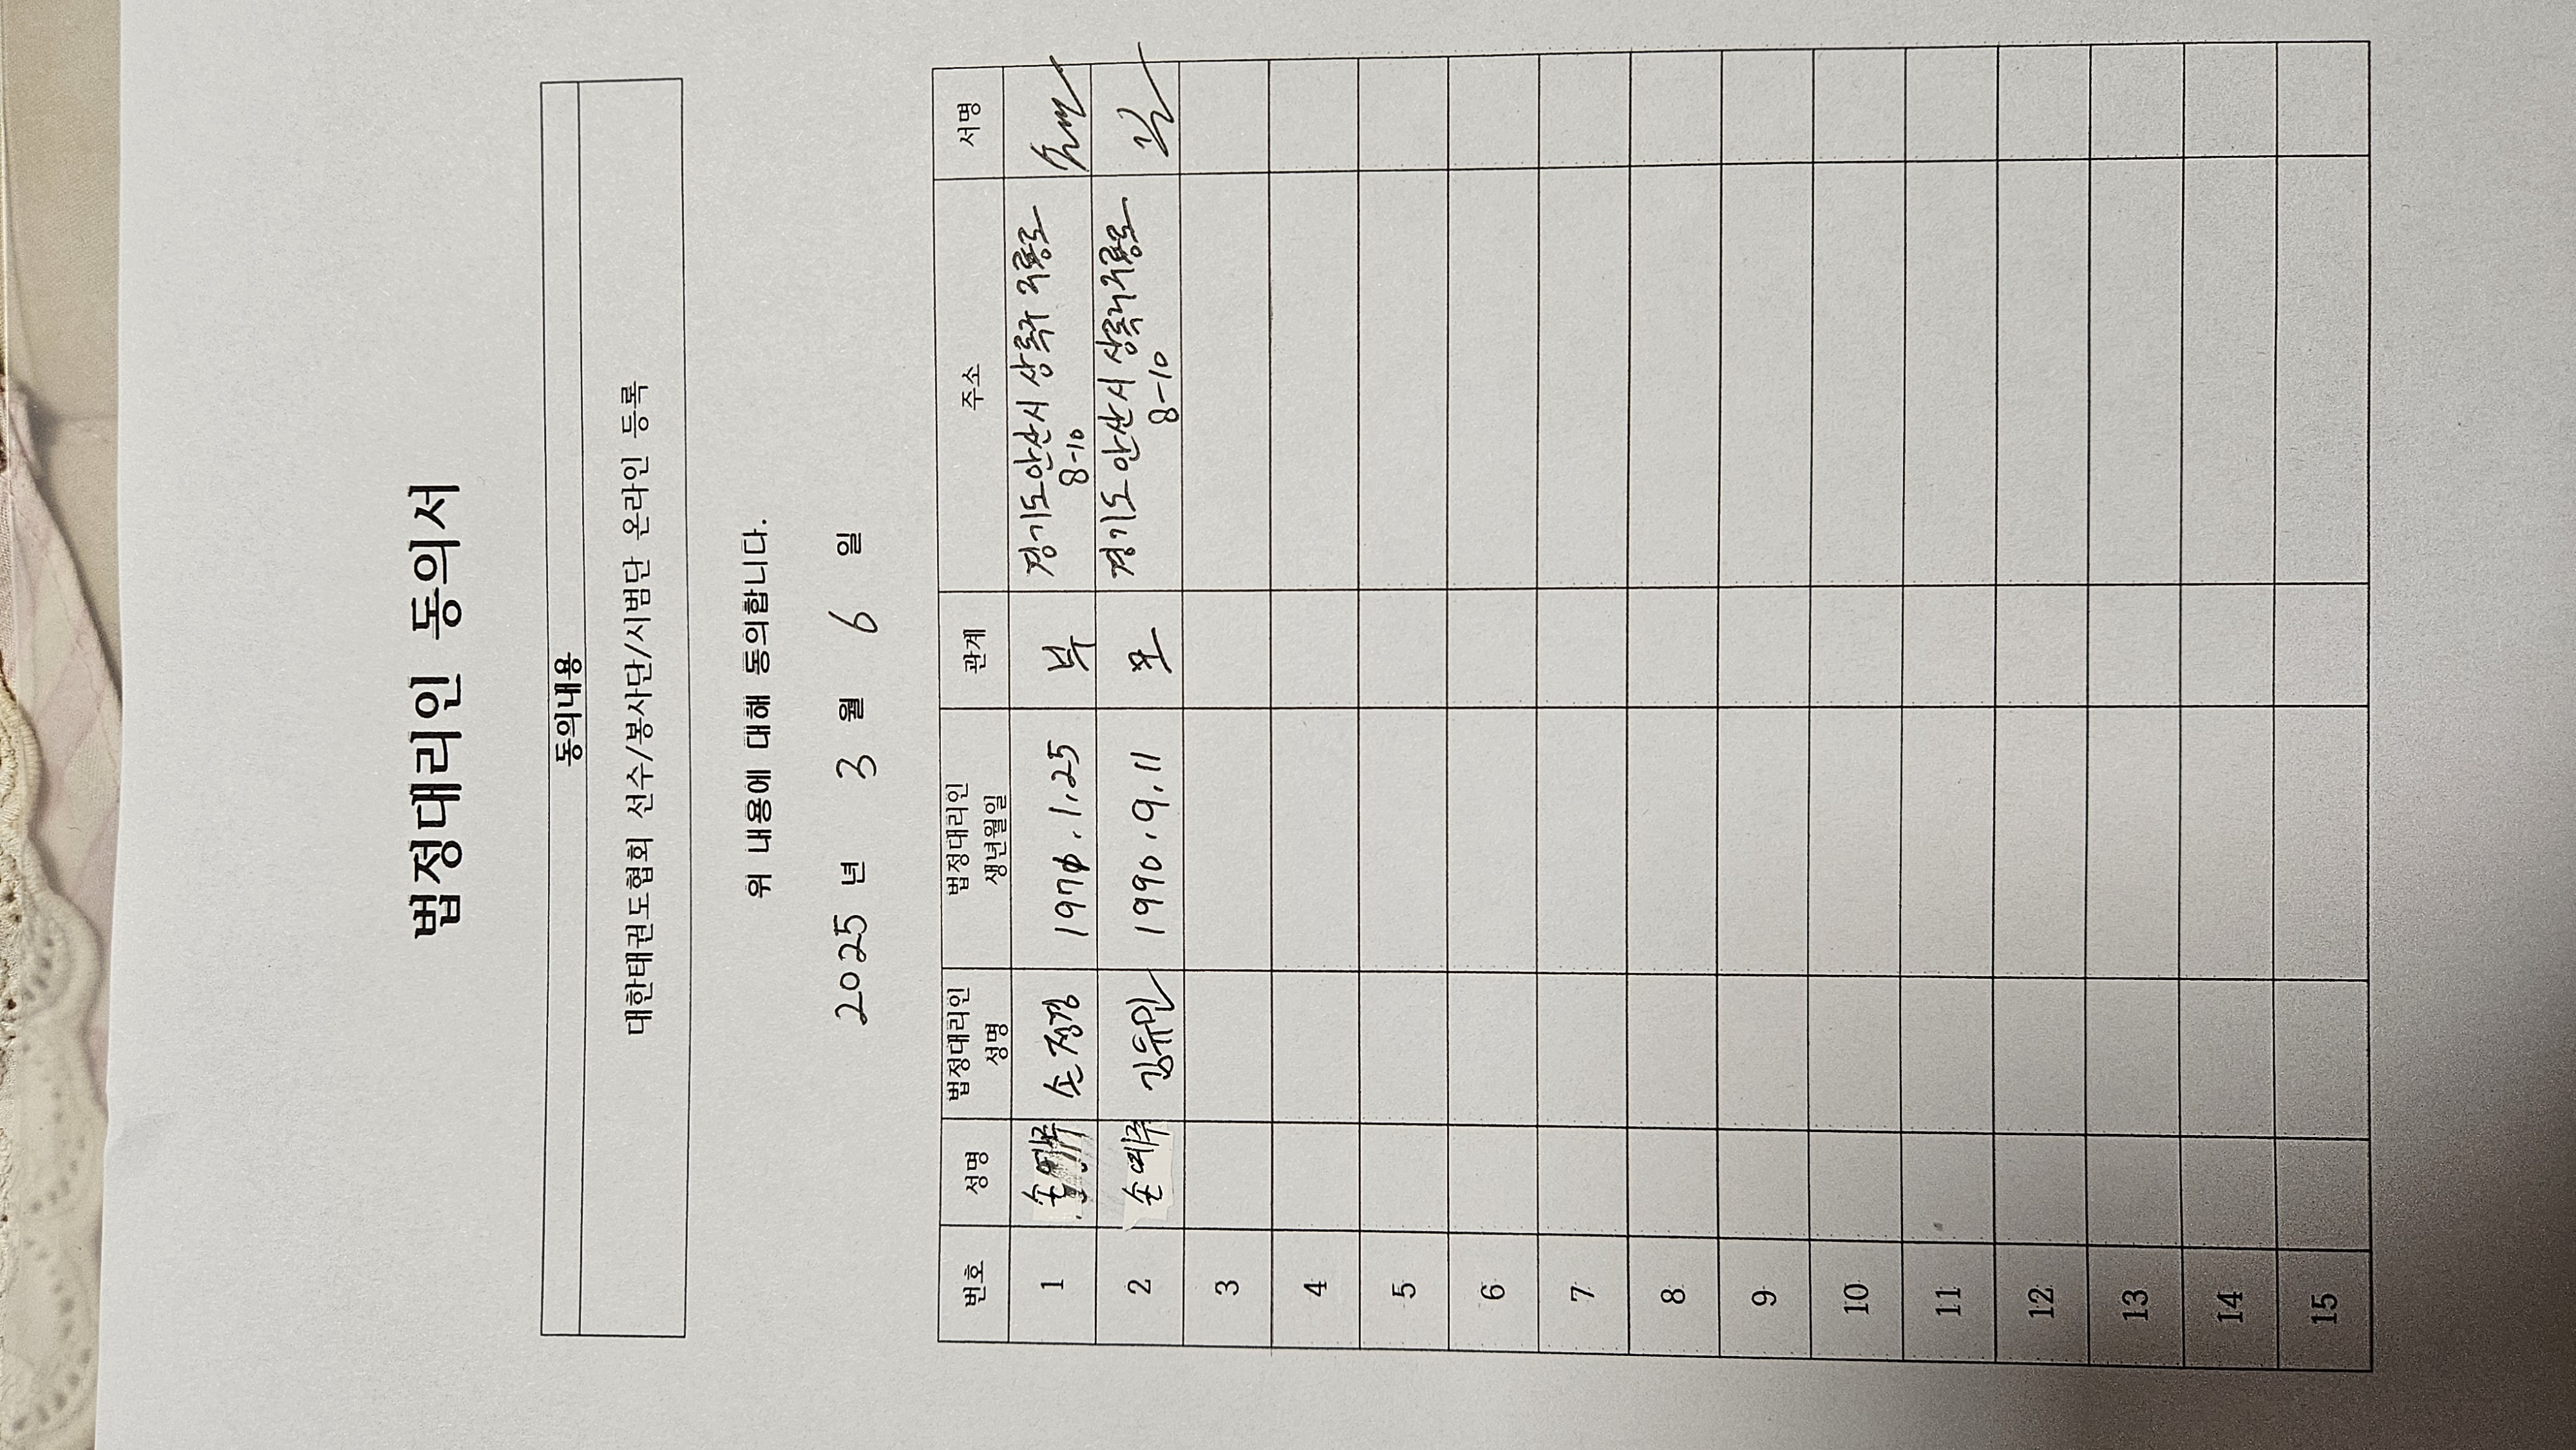 법정대리인 동의서
동의내용
대한태권도협회 선수/봉사단/시범단 온라인 등록
위 내용에 대해 동의합니다.
2025 년 3 월 6 일
번호 성명 법정대리인 성명 법정대리인 생년월일 관계 주소 서명
1 손예주 손정경 1970.1.25 부 경기도 안산시 상록구
8-10
2 손예주 1990.9.11 모 경기도 안산시 상록구
8-10
3
4
5
6
7
8
9
10
11
12
13
14
15